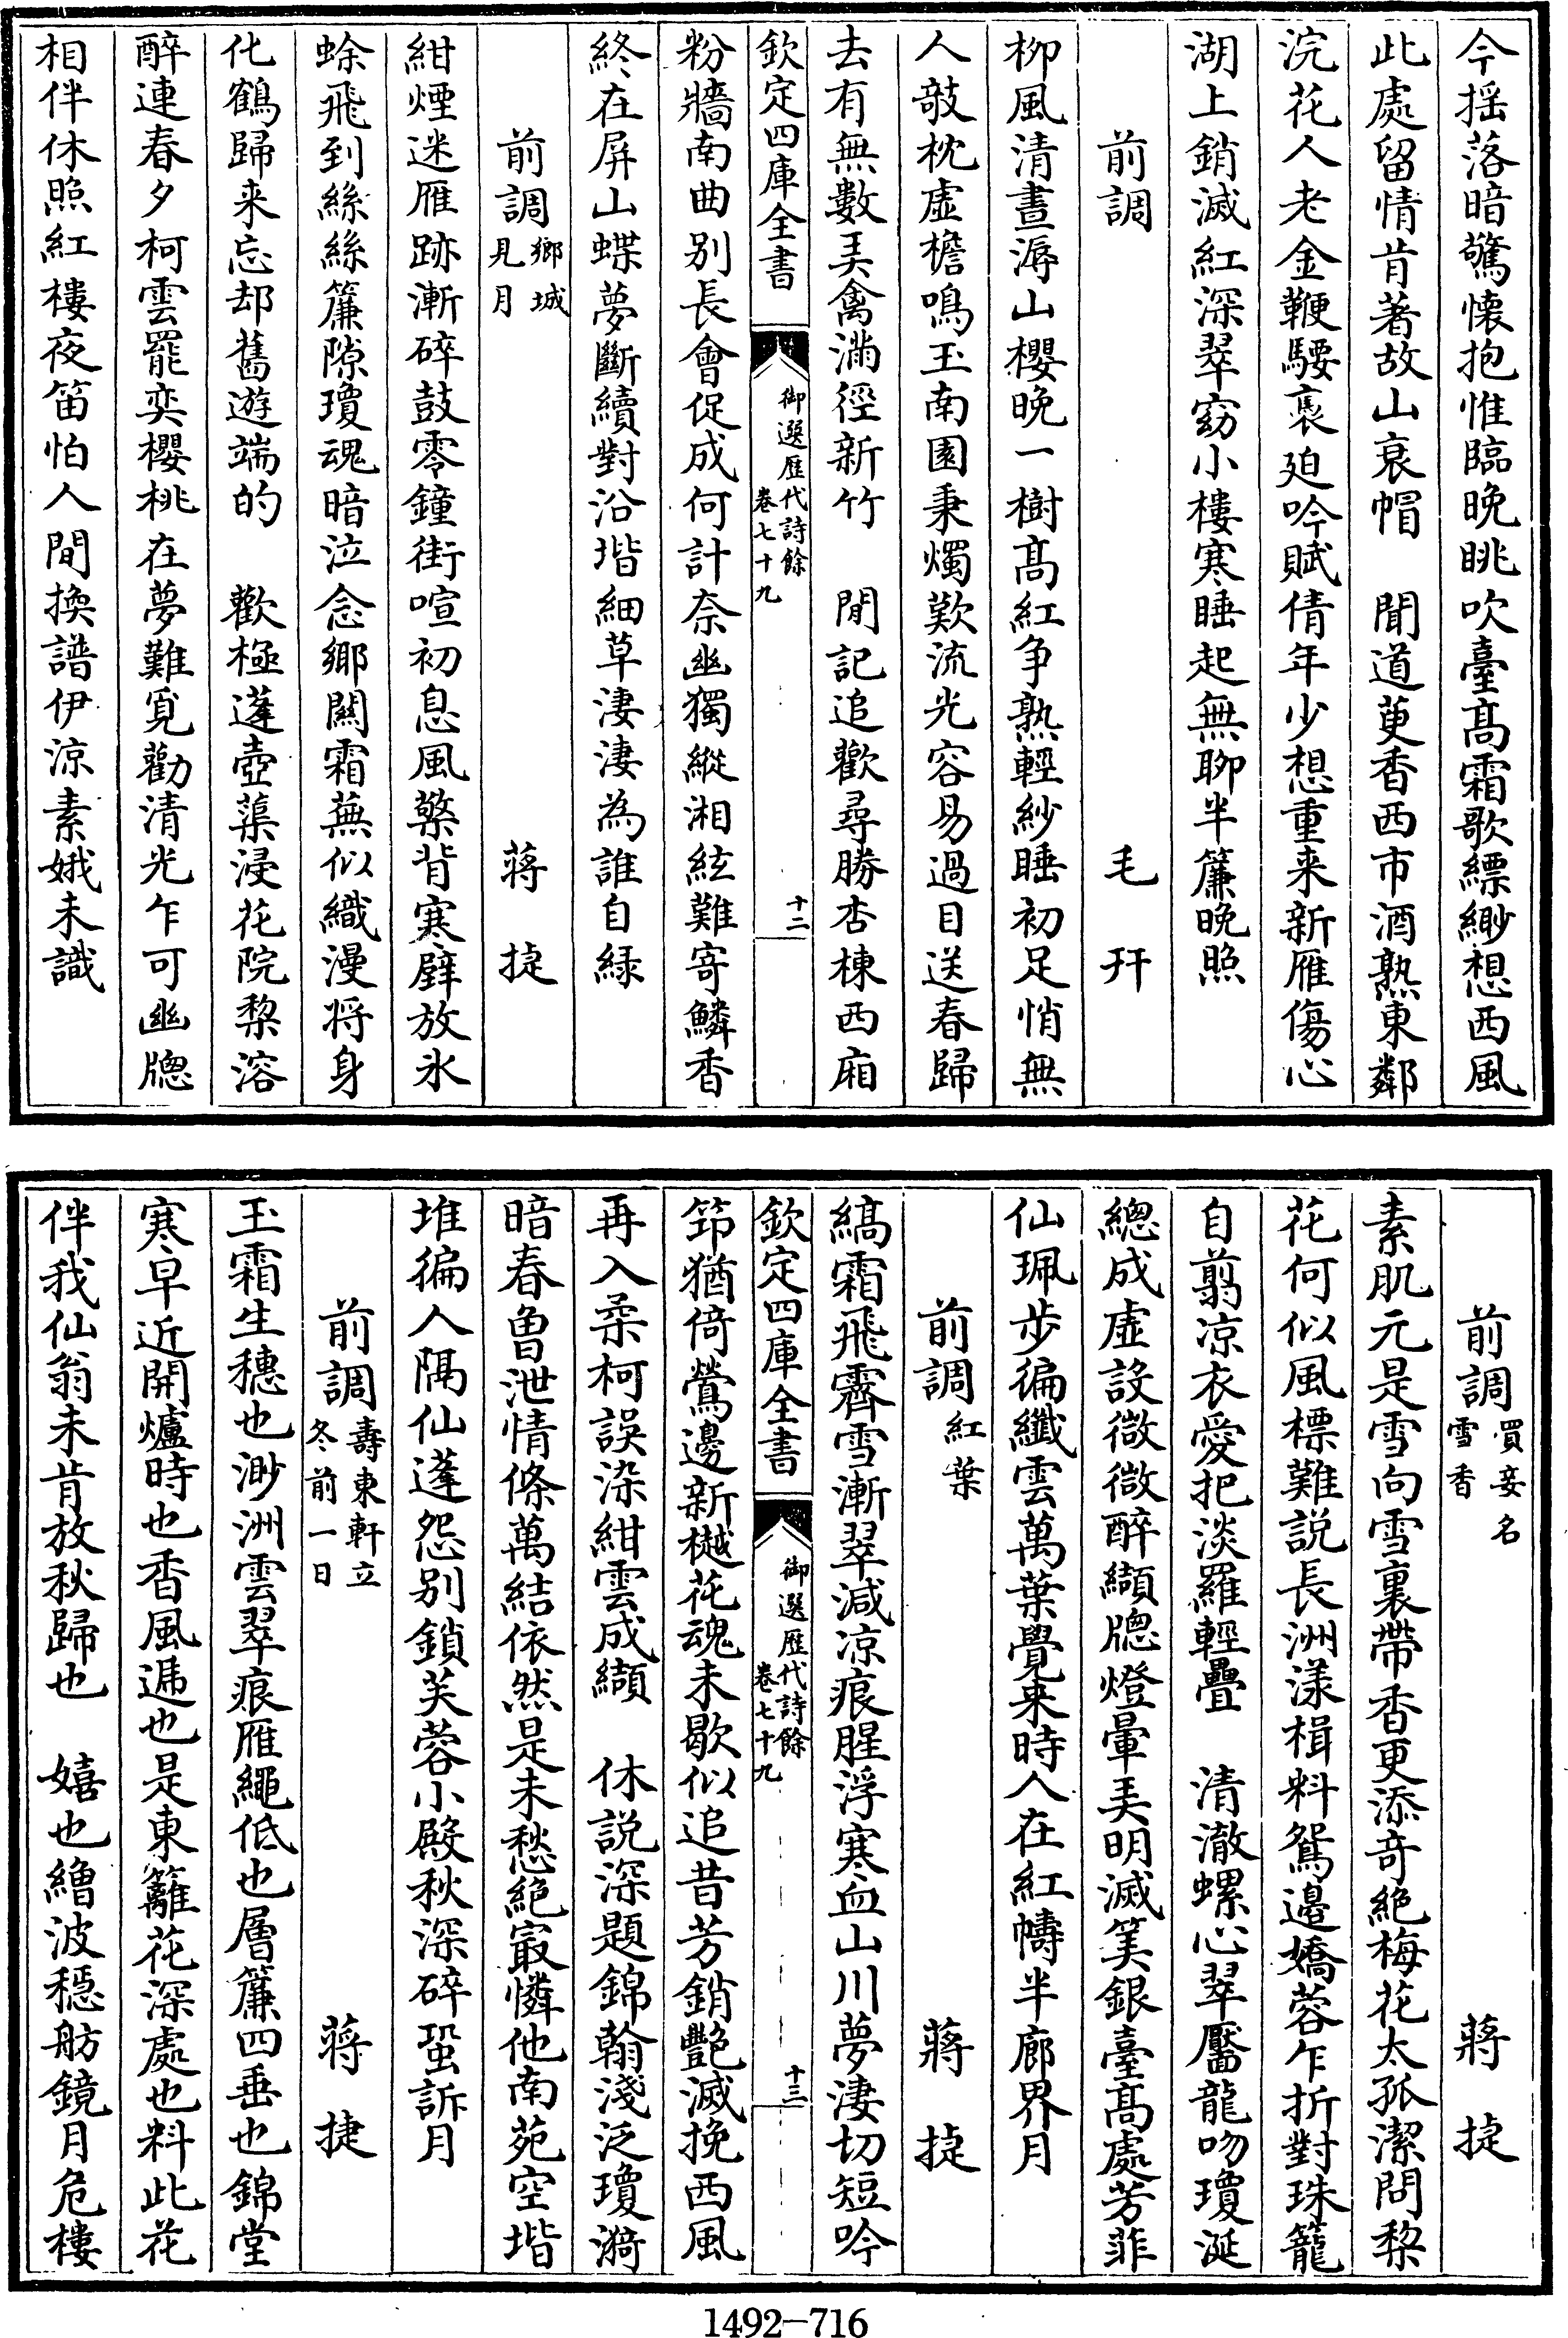 今揺落暗驚懐抱惟臨晚眺吹臺髙霜歌縹緲想西風
此處留情肯著故山衰帽　聞道萸香西市酒熟東鄰
浣花人老金鞭騕褭廹吟賦倩年少想重来新雁傷心
湖上銷滅紅深翠窈小樓寒睡起無聊半簾晚照
前調　毛幵
栁風清晝溽山櫻晚一樹髙紅争熟輕紗睡初足悄無
人敧枕虚檐鳴玉南園秉燭歎流光容易過目送春歸
去有無數美禽滿徑新竹　閒記追歡尋勝杏棟西廂
粉牆南曲别長㑹促成何計奈幽獨縱湘絃難寄鱗香
終在屏山蝶夢斷續對沿堦細草淒淒為誰自緑
前調鄉城見月　蔣捷
紺煙迷雁跡漸碎鼓零鐘街喧初息風檠背寒壁放氷
蜍飛到絲絲簾隙瓊魂暗泣念鄉闗霜蕪似織漫将身
化鶴歸来忘却舊遊端的　歡極蓬壺蕖浸花院棃溶
醉連春夕柯雲罷奕櫻桃在夢難覓勸清光乍可幽牕
相伴休照紅樓夜笛怕人間換譜伊涼素娥未識
欽定四庫全書　御選歴代詩餘卷七十九　十二
前調買妾名雪香　蔣捷
素肌元是雪向雪裏帶香更添奇絶梅花太孤潔問棃
花何似風標難説長洲漾楫料鴛邉嬌蓉乍折對珠籠
自翦凉衣愛把淡羅輕疊　清澈螺心翠靨龍吻瓊涎
總成虚設微微醉纈牕燈暈美明滅筭銀臺髙處芳菲
仙珮步徧纖雲萬葉覺来時人在紅幬半廊界月
前調紅葉　蔣捷
縞霜飛霽雪漸翠減凉痕腥浮寒血山川夢淒切短吟
笻猶倚鶯邊新樾花魂未歇似追昔芳銷艶滅挽西風
再入柔柯誤染紺雲成纈　休説深題錦翰淺泛瓊漪
暗春曾泄情條萬結依然是未愁絶㝡憐他南苑空堦
堆徧人隔仙蓬怨别鎖芙蓉小殿秋深碎蛩訴月
前調壽東軒立冬前一日　蔣捷
玉霜生穗也渺洲雲翠痕雁繩低也層簾四垂也錦堂
寒早近開爐時也香風逓也是東籬花深處也料此花
伴我仙翁未肯放秋歸也　嬉也繒波穏舫鏡月危樓
欽定四庫全書　御選歴代詩餘卷七十九　十三
1492-716